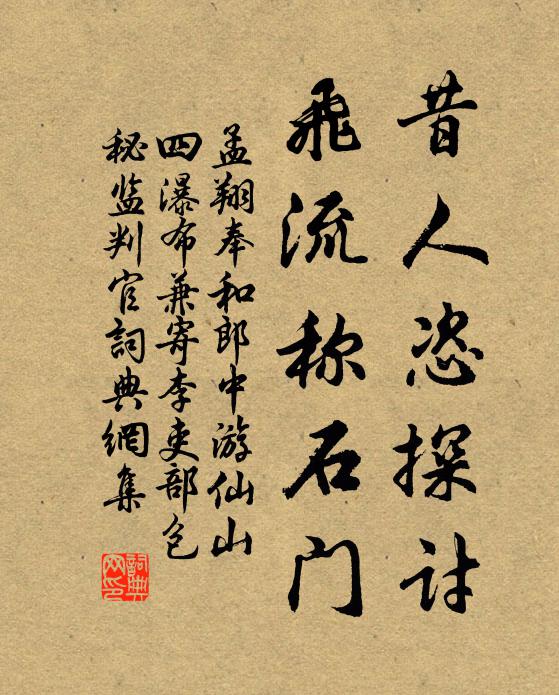 昔人恣探讨
飛流称石门
孟翔奉和郎中游仙山
四瀑布兼寄李吏部包
秘监判官詞典網集
詞典网印